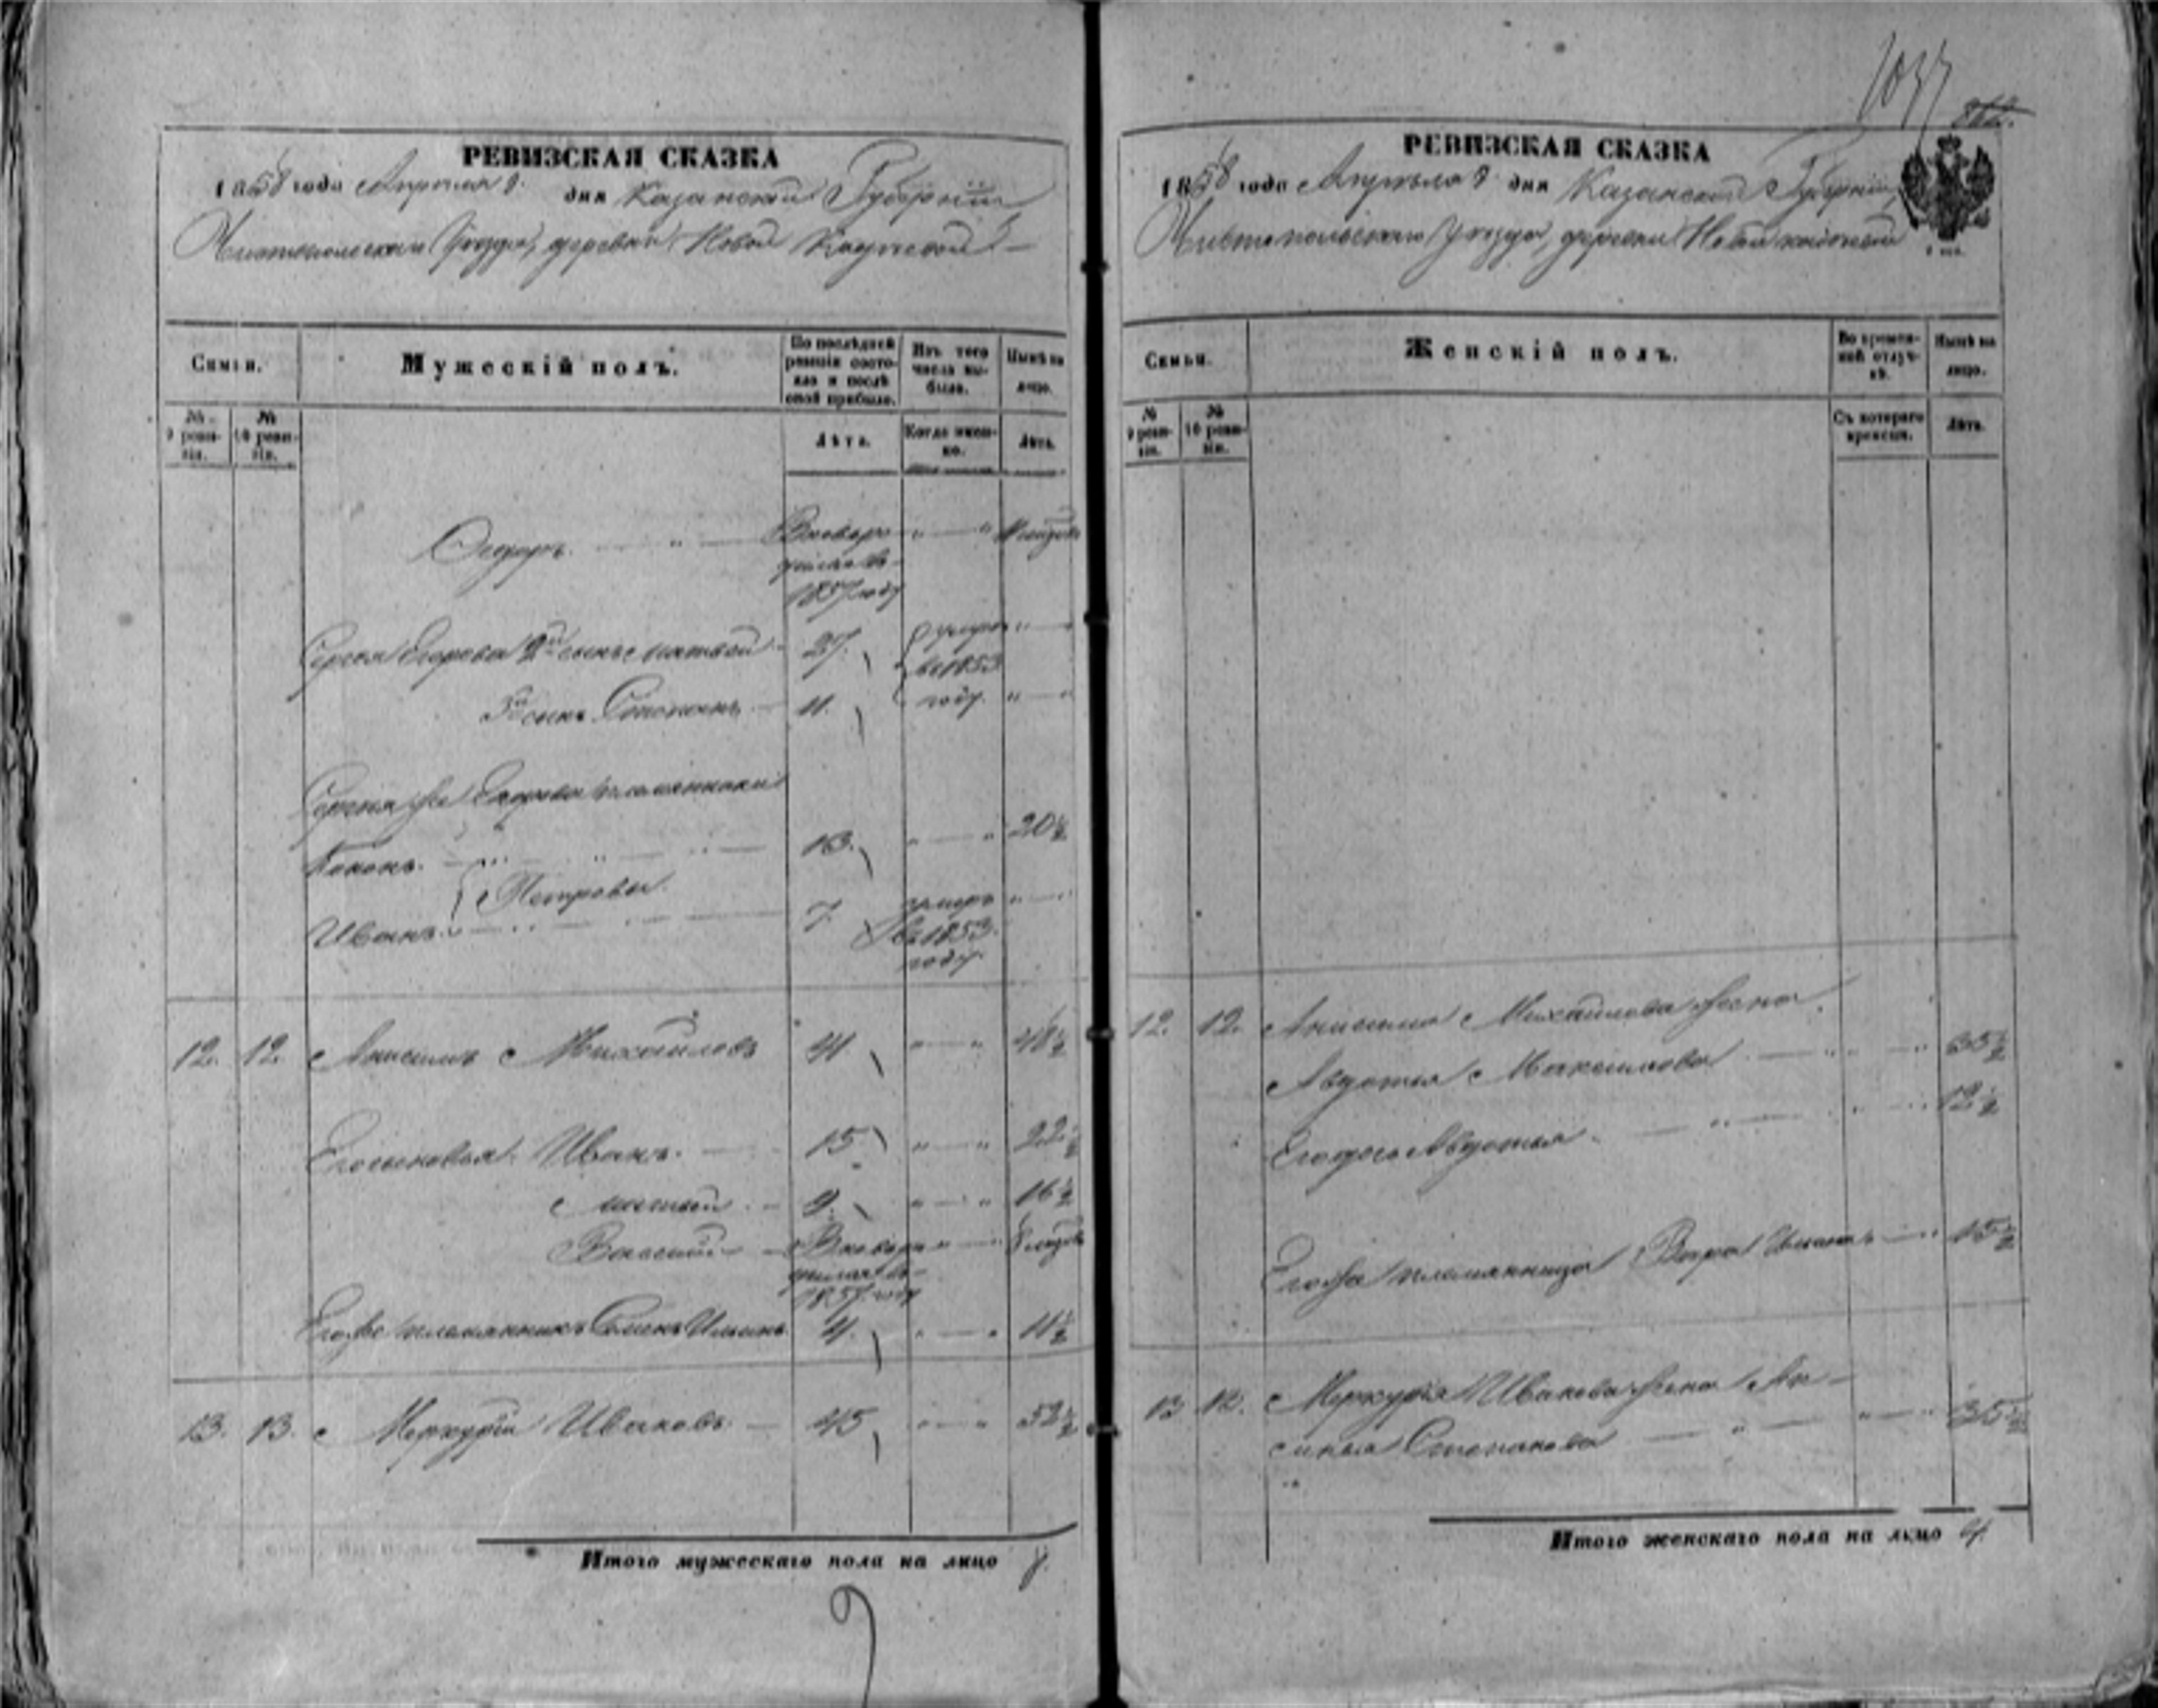 РЕВИЗСКАЯ СКАЗКА
1858 года Апреля 8 дня Казанской Губернии
Чистопольскаго Уезда, деревни Новой
Семьи.
Мужескій полъ.
По послѣдней ревизіи состояло и послѣ оной прибыло.
Изъ того числа выбыло.
Нынѣ на лицо.
№ 9 ревизіи.
№ 10 ревизіи.
Лѣта.
Когда именно.
Лѣта.
Федоръ
1857 году
Сергея Егорова 2й сынъ Матвей 27. умеръ
въ 1853
3й сынъ Степанъ 11. году.
Сергея же Егорова племянники
Кононъ. 13. 20½
Петровы
Иванъ 7 умеръ
въ 1853
году
12. 12. Анисимъ Михайловъ 41 48½
Его сыновья Иванъ. 15 22½
Матвей 9. 16½
Василий
1857 году
Его же племянникъ Семенъ Ильинъ 4. 11½
13. 13. Меркурій Ивановъ 45 52½
Итого мужескаго пола на лицо 8.
9
1037
862.
РЕВИЗСКАЯ СКАЗКА
1858 года Апреля 8 дня Казанской Губерніи,
Чистопольскаго Уезда, деревни Новой
Семьи.
Женскій полъ.
Во временной отлучкѣ.
Нынѣ на лицо.
№ 9 ревизіи.
№ 10 ревизіи.
Съ котораго времени.
Лѣта.
12. 12. Анисима Михайлова жена
Авдотья Максимова 35½
Его дочь Авдотья 12½
Его же племянница Вера Ильина 15½
13 12. Меркурія Иванова жена Ак-
синья Степанова 35½
Итого женскаго пола на лицо 4.